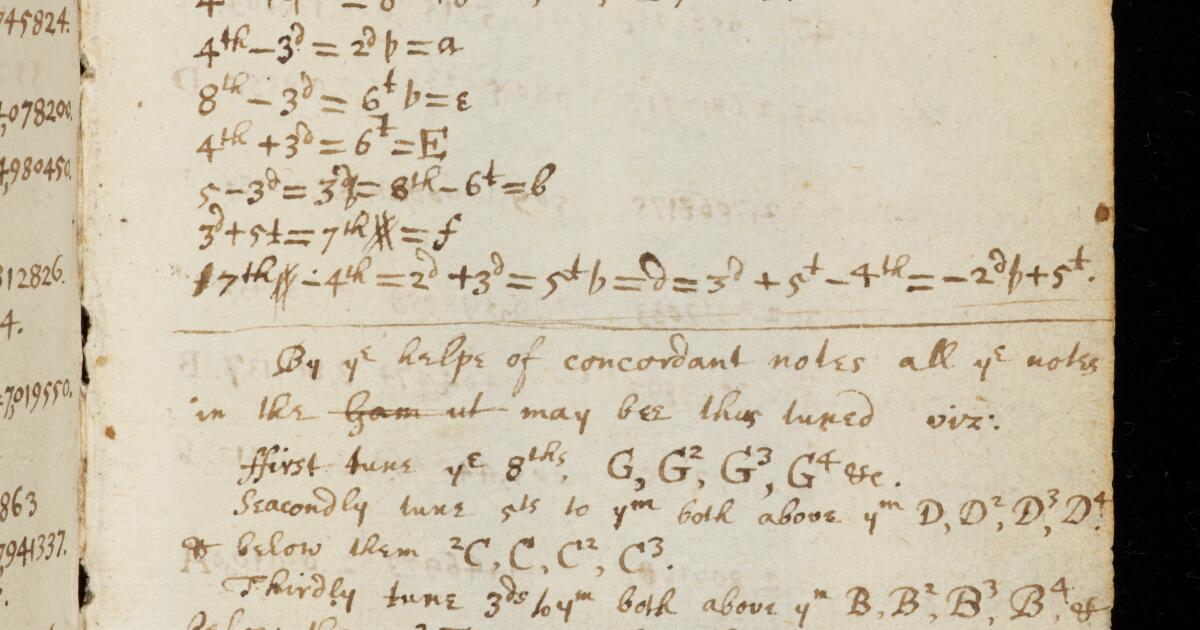 745824.
4,078200.
4,980450.
312826.
4.
4,7019550.
863
7,941337.
4th − 3d = 2d b = a
8th − 3d = 6t b = e
4th + 3d = 6t = E
5 − 3d = 3d b = 8th − 6t = b
3d + 5t = 7th = f
7th − 4th = 2d + 3d = 5t b = d = 3d + 5t − 4th = −2d b + 5t.
By ye helpe of concordant notes all ye notes
in the gam ut may bee thus tuned viz:
ffirst tune ye 8ths, G, G2, G3, G4 &c.
Seacondly tune 5ts to ym both above ym D, D2, D3, D4.
& below them 2C, C, C2, C3.
Thirdly tune 3ds to ym both above ym B, B2, B3, B4, &